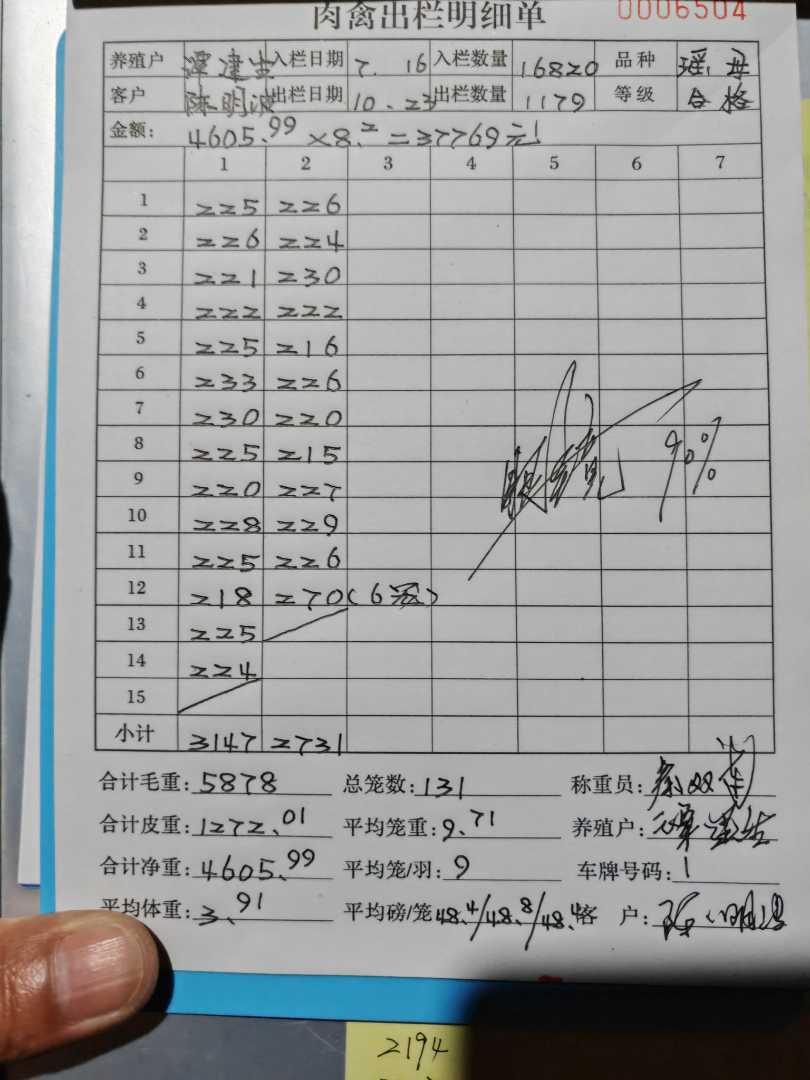 肉禽出栏明细单 0006504
养殖户 谭建生 入栏日期 7.16 入栏数量 16820 品种 瑶母
客户 陈明波 出栏日期 10.23 出栏数量 1179 等级 合格
金额: 4605.99×8.2=37769元
1 2 3 4 5 6 7
1 225 226
2 226 224
3 221 230
4 222 222
5 225 216
6 233 226
7 230 220
8 225 215
9 220 227
10 228 229
11 225 226
12 218 270(6笼)
13 225
14 224
15
90%
小计 3147 2731
合计毛重: 5878 总笼数: 131 称重员:
合计皮重: 1272.01 平均笼重: 9.71 养殖户:
合计净重: 4605.99 平均笼/羽: 9 车牌号码: 1
平均体重: 3.91 平均磅/笼 48.4/48.8/48.4 客户: 陈明波
2194